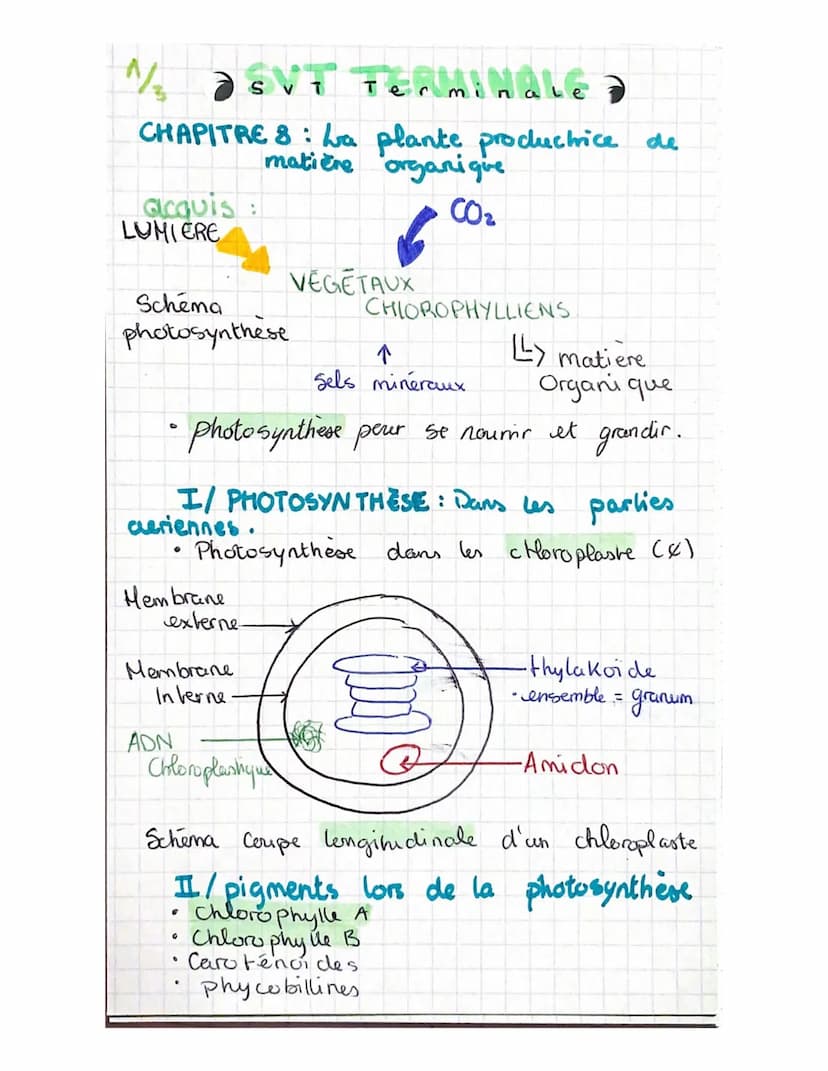 1/3
SVT TERMINALE
SVT Terminale
CHAPITRE 8 : La plante productrice de
matière organique
acquis :
LUMIERE
CO₂
VÉGÉTAUX
CHLOROPHYLLIENS
Schéma
photosynthèse
↑
sels minéraux
matière
Organique
• photosynthèse pour se nourrir et grandir.
I/ PHOTOSYNTHÈSE : Dans les parties
aeriennes.
• Photosynthèse dans les chloroplaste (¢)
Membrane
externe
Membrane
Interne
thylakoïde
• ensemble = granum
ADN
Chloroplastique
Amidon
Schéma coupe longitudinale d'un chloroplaste
II/ pigments lors de la photosynthèse
• Chlorophylle A
• Chlorophylle B
• Caroténoïdes
• phycobillines